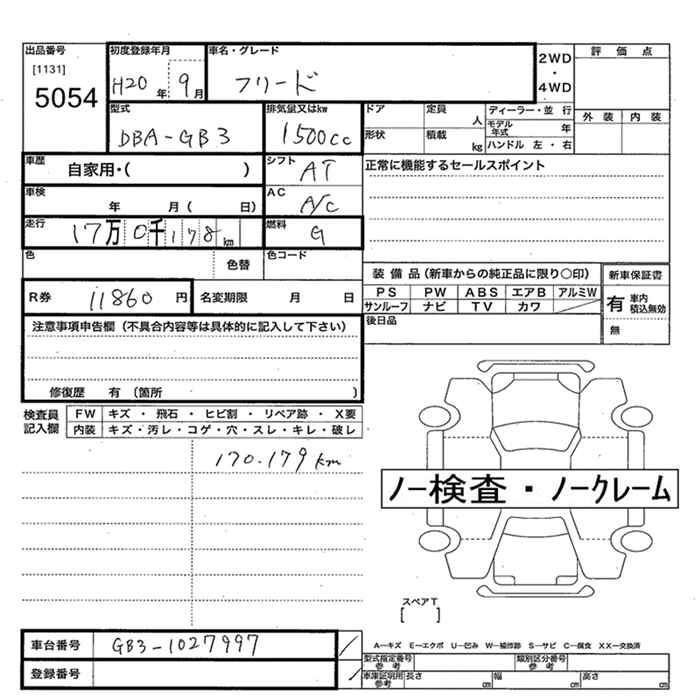 出品番号 初度登録年月 車名・グレード 2WD・4WD 評価点
[1131]
5054 H20年 9月 フリード
型式 排気量又はkw ドア 定員 人 ディーラー・並行 外装 内装
DBA-GB3 1500cc 形状 積載 kg モデル年式 年 ハンドル 左・右
車歴 自家用・( ) シフト AT 正常に機能するセールスポイント
車検 年 月( 日) AC A/C
走行 17万0千178km 燃料 G
色 色替 色コード 装備品(新車からの純正品に限り○印) 新車保証書
R券 11860円 名変期限 月 日 PS PW ABS エアB アルミW 有 車内積込無効
サンルーフ ナビ TV カワ
後日品 無
注意事項申告欄(不具合内容等は具体的に記入して下さい)
修復歴 有(箇所 )
検査員記入欄 FW キズ・飛石・ヒビ割・リペア跡・X要
内装 キズ・汚レ・コゲ・穴・スレ・キレ・破レ
170.179km
ノー検査・ノークレーム
スペアT
[ ]
車台番号 GB3-1027997
A―キズ E―エクボ U―凹み W―補修跡 S―サビ C―腐食 XX―交換済
登録番号 型式指定番号参考 類別区分番号参考
車庫証明用参考 長さ cm 幅 cm 高さ cm